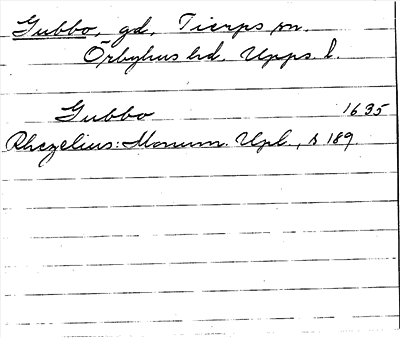 Gubbo, gd, Tierps sn.
Örbyhus hd, Upps. l.
Gubbo 1635
Rhezelius: Monum. Upl., s 189.